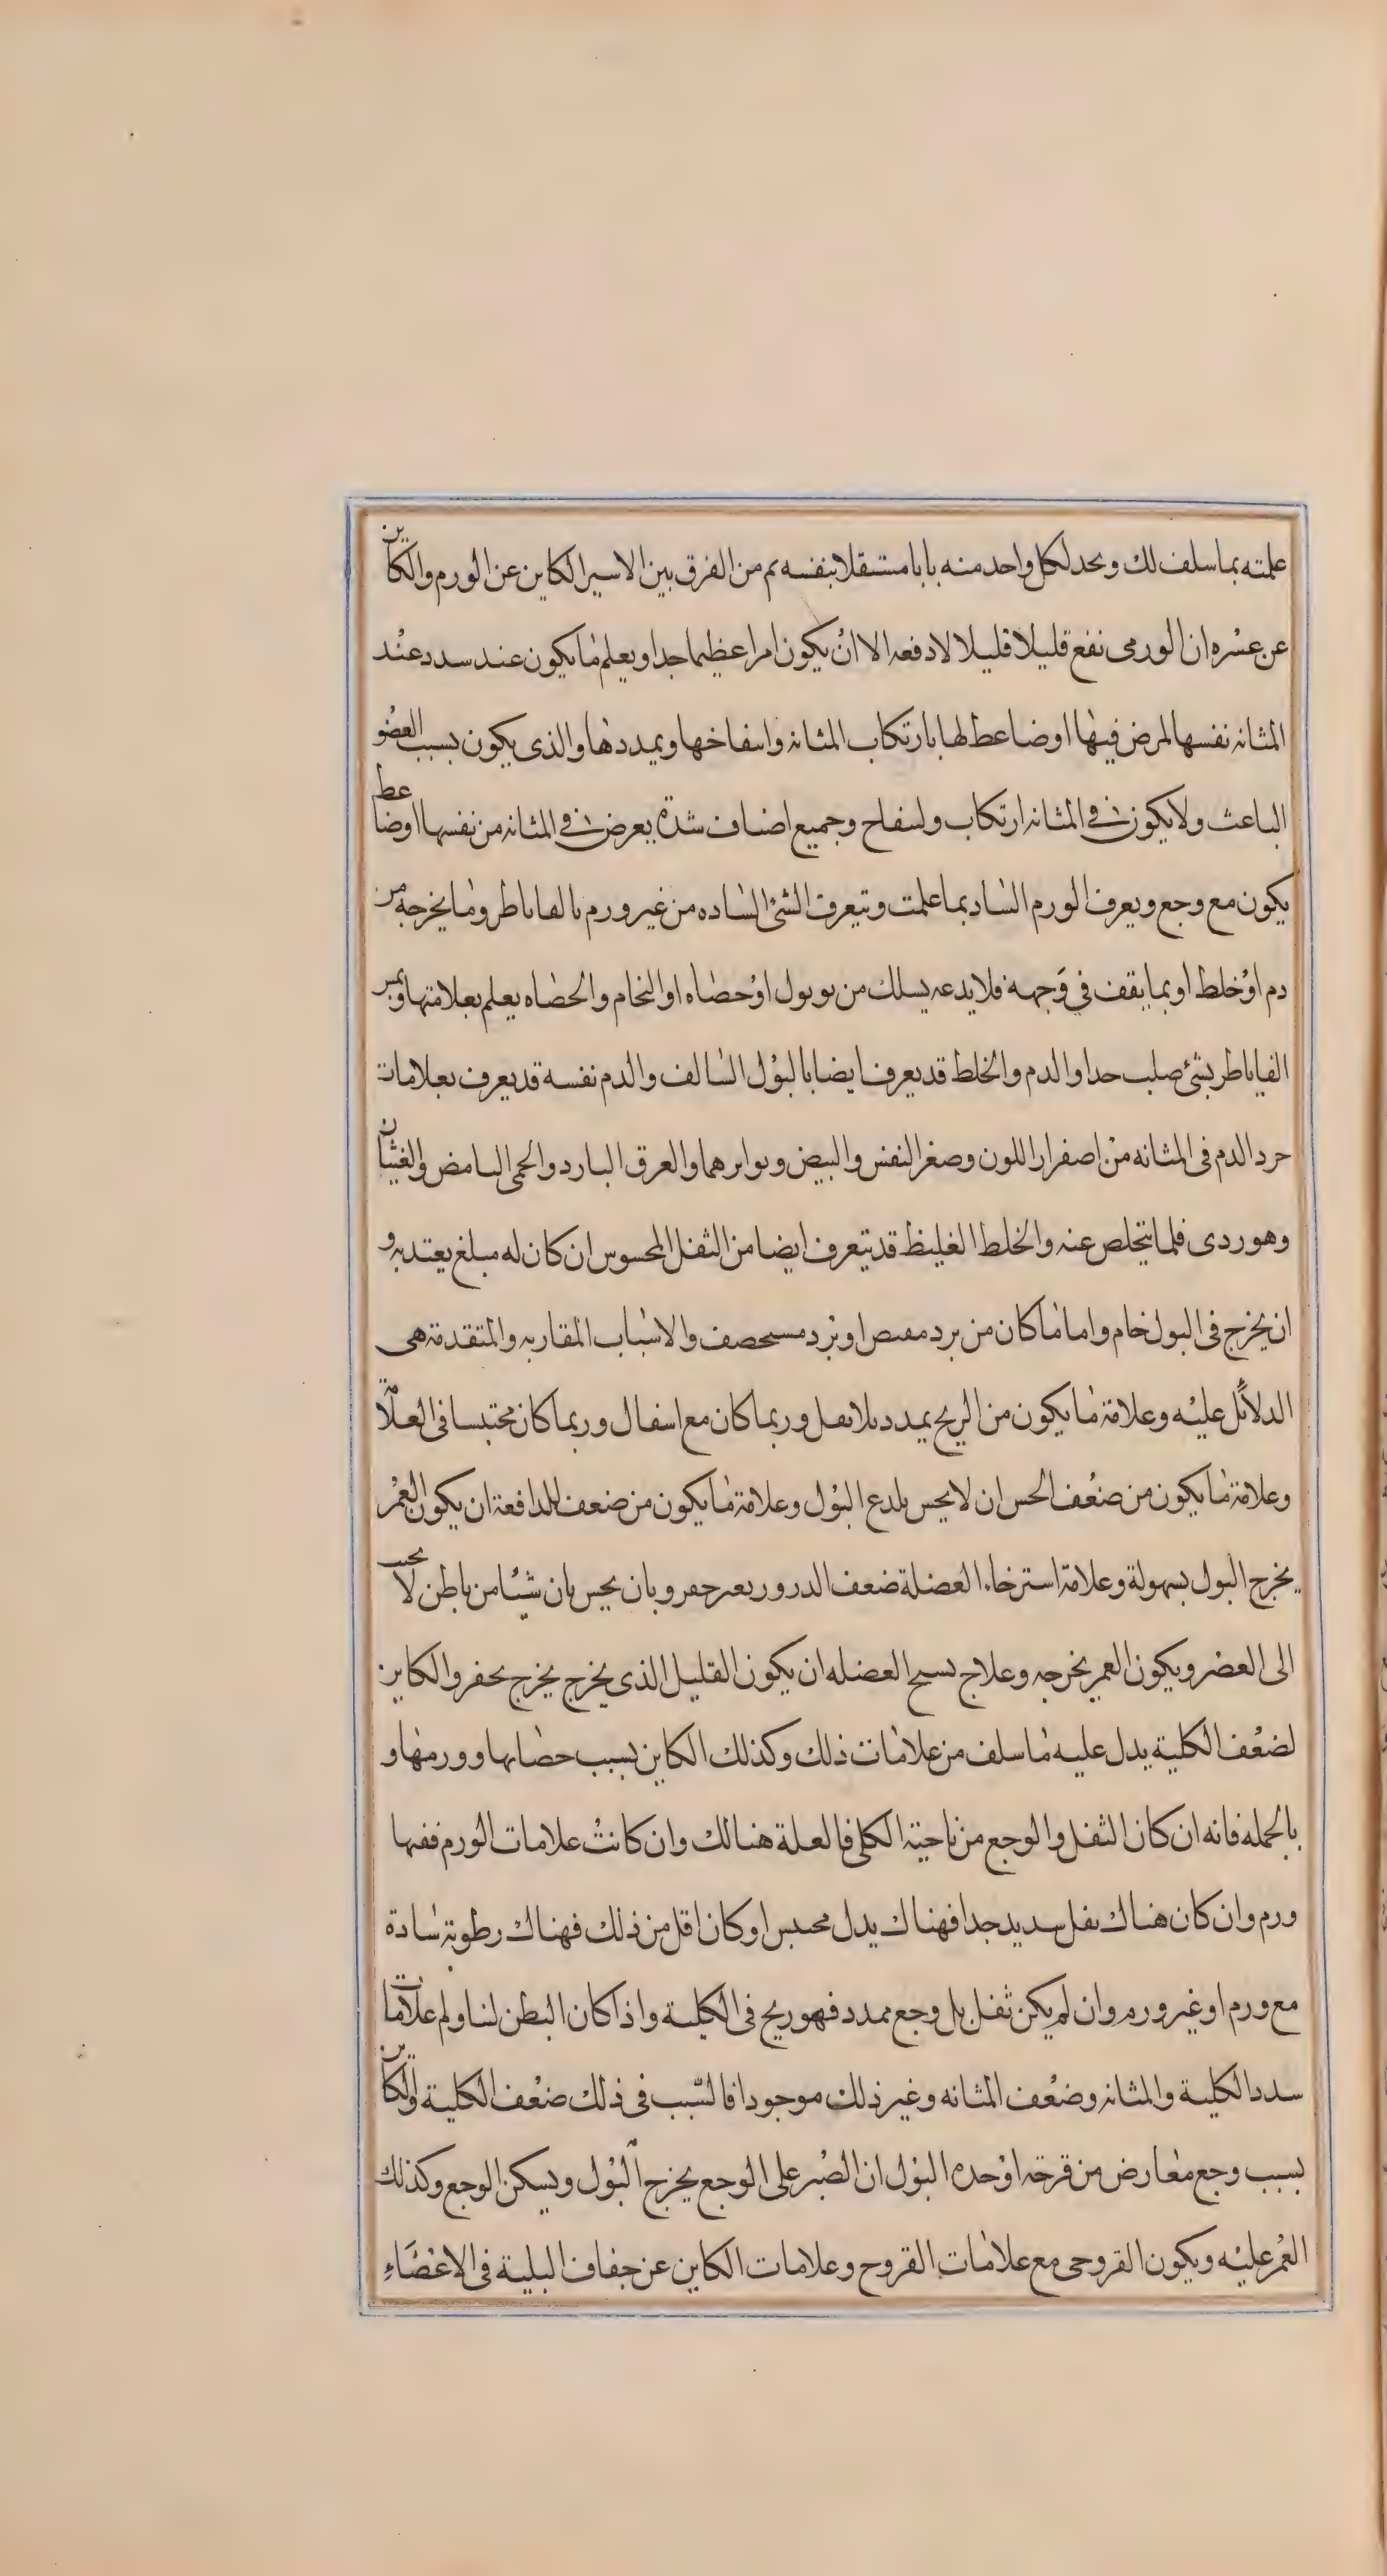 علمته بما سلف لك وبحد لكل واحد منه بابا مستقلا بنفسه ثم من الفرق بين الاسير الكاين عن الورم والكاين
عن عسره ان الورمى نفع قليلا قليلا لا دفعه الا ان يكون امرا عظيما جدا ويعلم ما يكون عند سدد عند
المثانه نفسها لمرض فيها او ضاعط لها بارتكاب المثانه وانتفاخها وتمددها والذى يكون بسبب العضو
الباعث ولا يكون فى المثانه ارتكاب ولنفاح وجميع اصناف شدة يعرض فى المثانه من نفسها او ضاعط
يكون مع وجع ويعرف الورم الساد بما علمت وتيعرف الشئ الساده من غير ورم بالقاباطر وما يخرجه من
دم او خلط او بما يقف فى وجهه فلا يدعه يسلك من بو بول او حصاه او النخام والحصاه يعلم بعلامتها وبمس
القاباطر بشئ صلب حدا والدم والخلط قد يعرف ايضا بالبول السالف والدم نفسه قد يعرف بعلامات
حرد الدم فى المثانه من اصفرار اللون وصغر النفس والبيض وبواترهما والعرق البارد والحمى النامض والغثيان
وهو ردى فلما يتخلص عنه والخلط الغليظ قد يتعرف ايضا من الثفل المحسوس ان كان له مبلغ يعتد به و
ان يخرج فى البول خام واما ما كان من برد مقبص او برد مسحصف والاسباب المقاربه والمتقدمة هى
الدلائل عليه وعلامة ما يكون من الريح يمدد بلا ثفل وربما كان مع اسفال وربما كان محتبسا فى العلامة
وعلامة ما يكون من ضعف الحس ان لا يحس بلدع البول وعلامة ما يكون من ضعف للدافعة ان يكون الغمز
يخرج البول بسهولة وعلامة استرخاء العضلة ضعف الدرور بغير حفز وبان يحس بان شيئا من باطن لا يحب
الى العضر ويكون العمر يخرجه وعلاج سبح العضله ان يكون القليل الذى يخرج يخرج بحفر والكاين
لضعف الكلية يدل عليه ما سلف من علامات ذلك وكذلك الكاين بسبب حصاتها وورمها و
بالجمله فانه ان كان الثفل والوجع من ناحية الكلى فالعلة هنالك وان كانت علامات الورم ففها
ورم وان كان هناك ثفل سديد جدا فهناك يدل محبس او كان اقل من ذلك فهناك رطوبة سادة
مع ورم او غير ورم وان لم يكن ثفل بل وجع ممدد فهو ريح فى الكلية واذا كان البطن لنا ولم علامات
سدد الكلية والمثانه وضعف المثانه وغير ذلك موجودا فالسبب فى ذلك ضعف الكلية والكاين
بسبب وجع معارض من قرحة او حده البول ان الصبر على الوجع يخرج البول ويسكن الوجع وكذلك
الغمز عليه ويكون القروحى مع علامات القروح وعلامات الكاين عن جفاف البلية فى الاعضاء